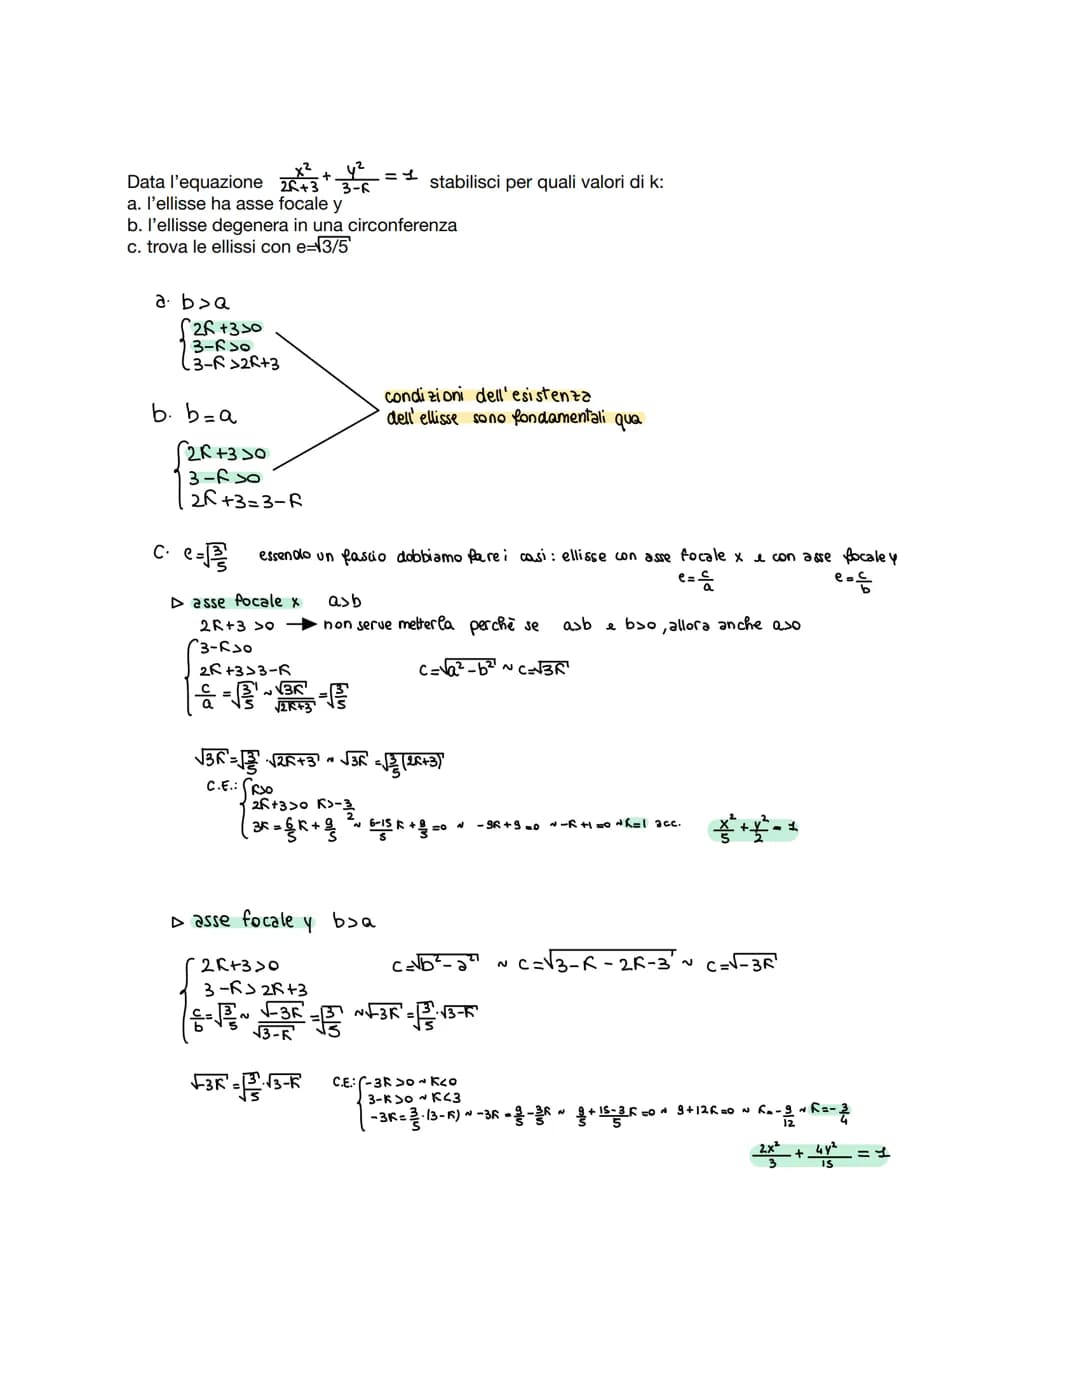 Data l'equazione x²/(2k+3) + y²/(3-k) = 1 stabilisci per quali valori di k:
a. l'ellisse ha asse focale y
b. l'ellisse degenera in una circonferenza
c. trova le ellissi con e=√3/5
a. b>a
2k+3>0
3-k>0
3-k>2k+3
condizioni dell'esistenza
dell'ellisse sono fondamentali qua
b. b=a
2k+3>0
3-k>0
2k+3=3-k
C. e=√(3/5) essendo un fascio dobbiamo fare i casi: ellisse con asse focale x e con asse focale y
e=c/a e=c/b
▷ asse focale x a>b
2k+3>0 → non serve metterla perchè se a>b e b>0, allora anche a>0
3-k>0
2k+3>3-k c=√(a²-b²) ~ c=√(3k)
c/a = √(3/5) ~ √(3k)/√(2k+3) = √(3/5)
√(3k) = √(3/5) · √(2k+3) ~ √(3k) = √(3/5(2k+3))
C.E.: k>0
2k+3>0 k>-3/2
3k = 6/5 k + 9/5 ~ (6-15)/5 k + 9/5 = 0 ~ -9k+9=0 ~ -k+1=0 ~ k=1 acc. x²/5 + y²/2 = 1
▷ asse focale y b>a
2k+3>0 c=√(b²-a²) ~ c=√(3-k-2k-3) ~ c=√(-3k)
3-k>2k+3
c/b = √(3/5) ~ √(-3k)/√(3-k) = √(3/5) ~ √(-3k) = √(3/5) · √(3-k)
√(-3k) = √(3/5) · √(3-k) C.E.: -3k>0 ~ k<0
3-k>0 ~ k<3
-3k = 3/5 · (3-k) ~ -3k = 9/5 - 3/5 k ~ 9/5 + (15-3)/5 k = 0 ~ 9+12k=0 ~ k=-9/12 ~ k=-3/4
2x²/3 + 4y²/15 = 1